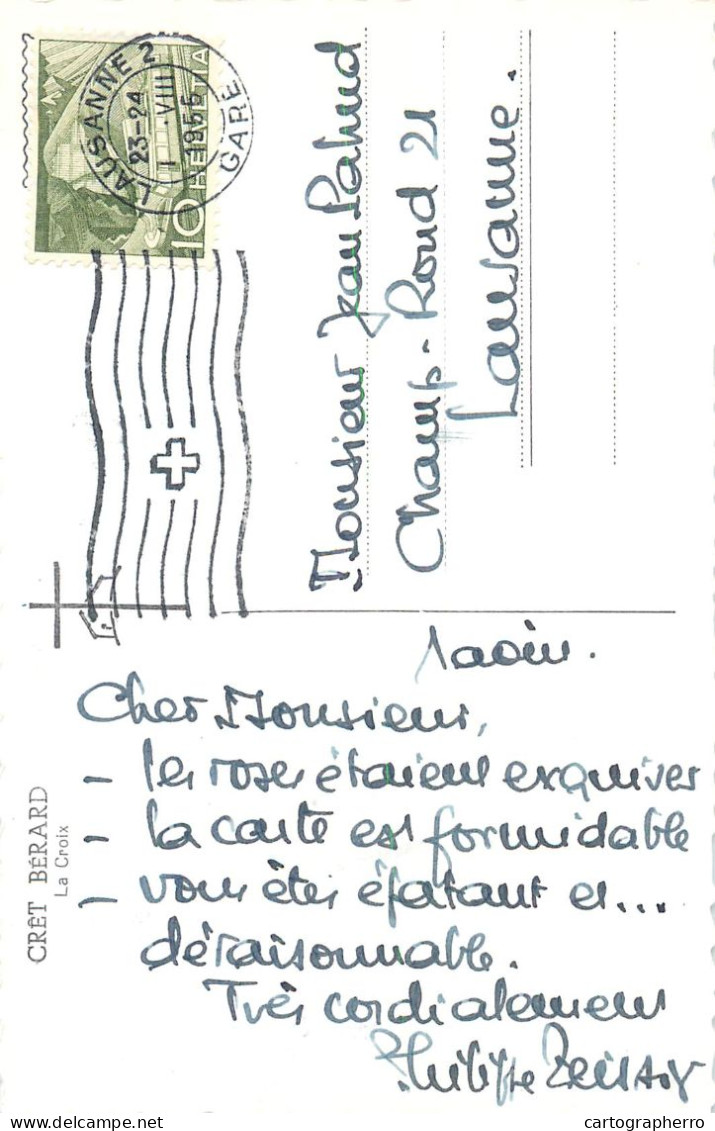 CRÊT BÉRARD
La Croix
HELVETIA
10
LAUSANNE 2
23-24
1.-VIII
1955
GARE
Monsieur Jean Pahud
Champ-Rond 21
Lausanne.
1 août.
Cher Monsieur,
- les roses étaient exquises
- la carte est formidable
- vous êtes épatant et...
déraisonnable.
Très cordialement
Philippe
cartographerro